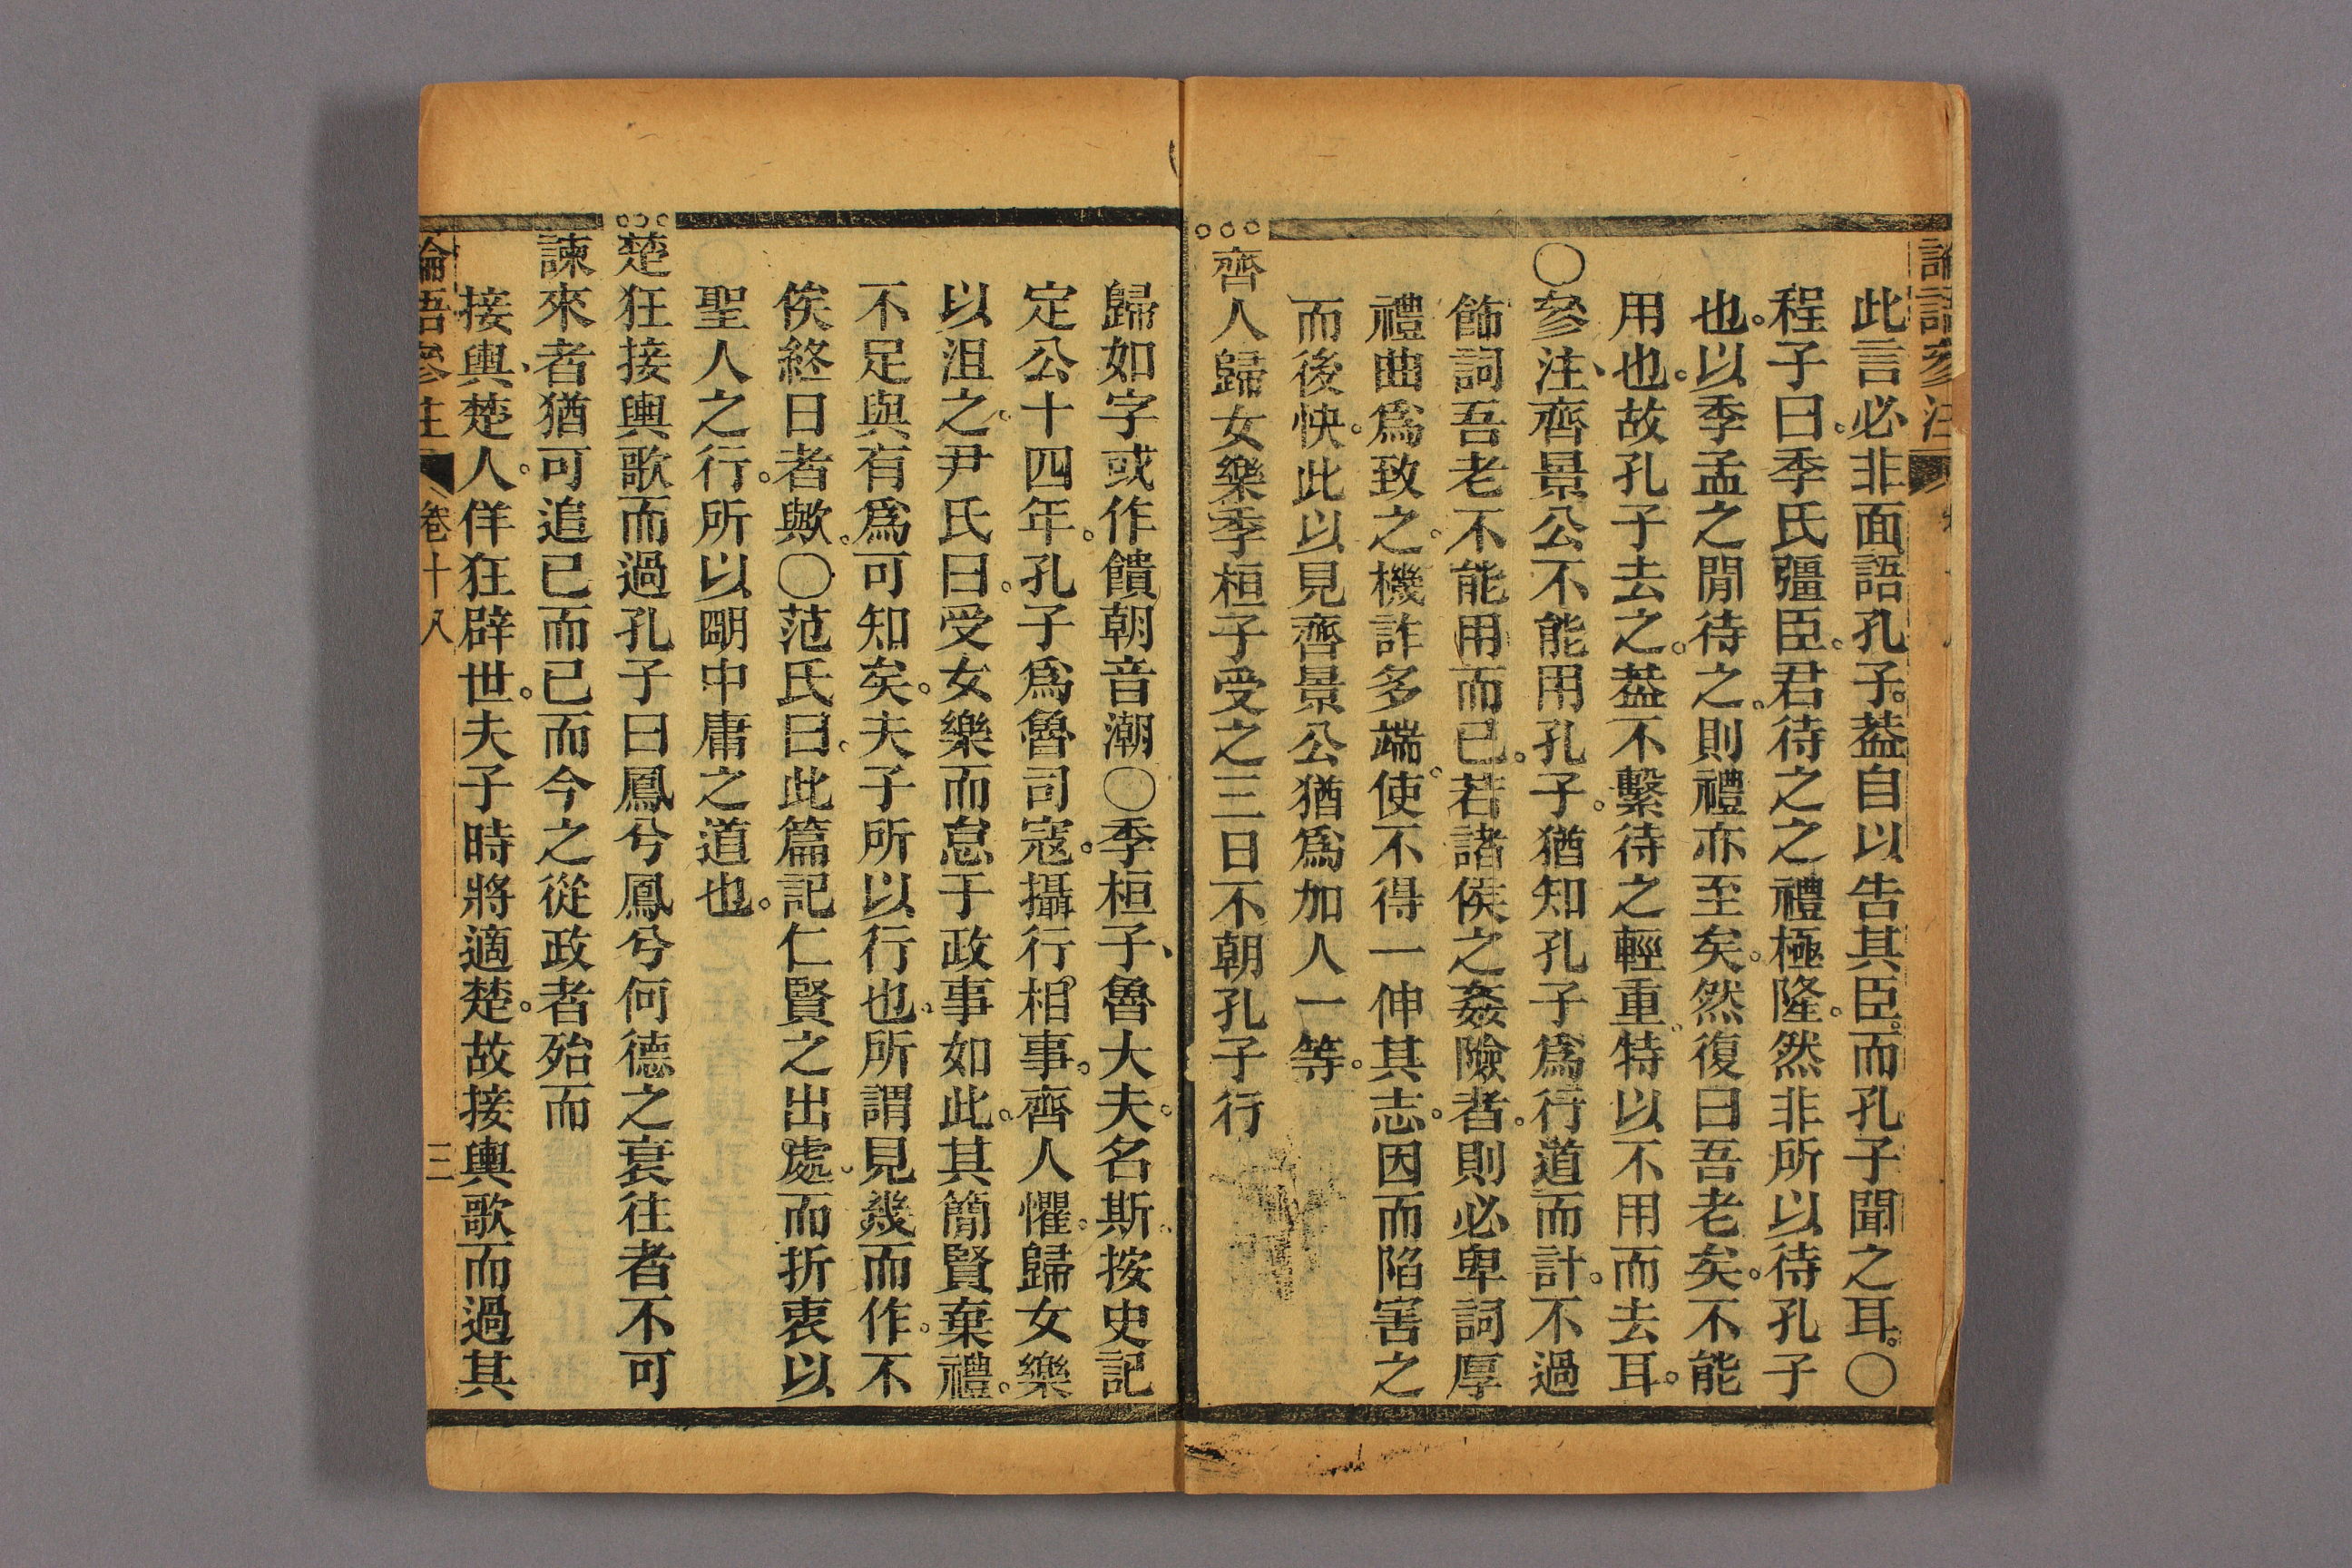 此言必非面語孔子。葢自以告其臣。而孔子聞之耳。〇
程子曰。季氏彊臣。君待之之禮極隆。然非所以待孔子
也。以季孟之閒待之。則禮亦至矣。然復曰吾老矣。不能
用也。故孔子去之。葢不繫待之輕重。特以不用而去耳。
〇參注、齊景公不能用孔子。猶知孔子爲行道而計。不過
飾詞吾老不能用而已。若諸侯之姦險者。則必卑詞厚
禮曲爲致之。機詐多端。使不得一伸其志。因而陷害之
而後快。此以見齊景公猶爲加人一等。
齊人歸女樂季桓子受之三日不朝孔子行
歸如字或作饋朝音潮〇季桓子、魯大夫。名斯。按史記
定公十四年。孔子爲魯司寇。攝行相事。齊人懼。歸女樂
以沮之。尹氏曰。受女樂而怠于政事如此。其簡賢棄禮。
不足與有爲可知矣。夫子所以行也。所謂見幾而作。不
俟終日者歟。〇范氏曰。此篇記仁賢之出處。而折衷以
聖人之行。所以明中庸之道也。
楚狂接輿歌而過孔子曰鳳兮鳳兮何德之衰往者不可
諫來者猶可追已而已而今之從政者殆而
接輿、楚人。佯狂辟世。夫子時將適楚。故接輿歌而過其
論語參注
卷十八
三